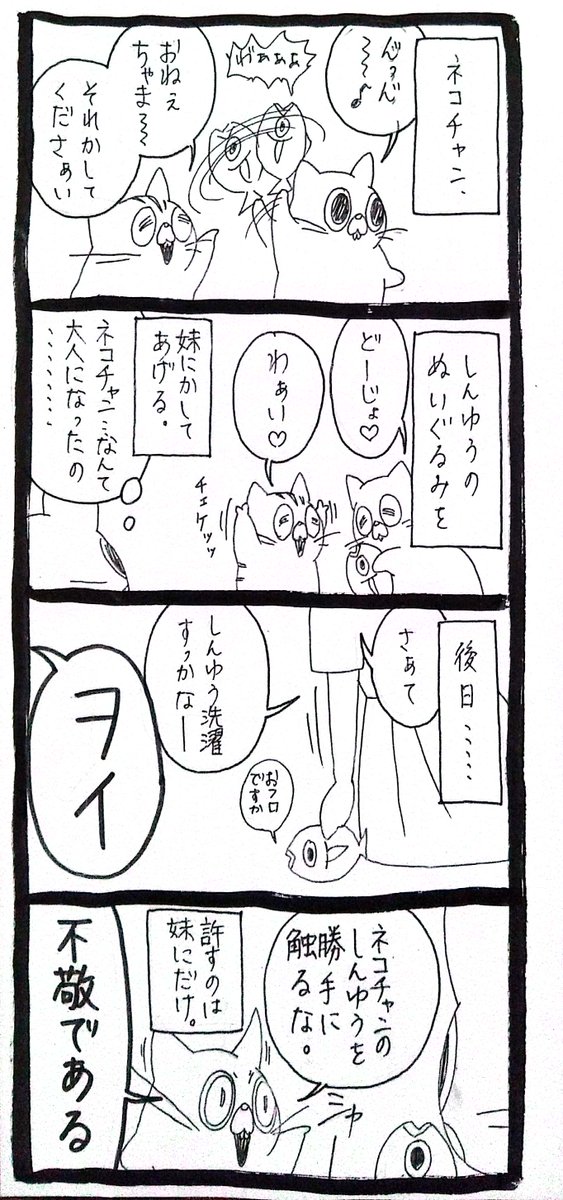 ネコチャン、
おねぇ
ちゃま〜〜
それかして
くださぁい
しんゆうの
ぬいぐるみを
どーじょ♡
わぁい♡
チェケッッ
妹にかして
あげる。
ネコチャン…なんて
大人になったの
………
後日……
さあて
しんゆう洗濯
すっかなー
おフロ
ですか
ヲイ
ネコチャンの
しんゆうを
勝手に
触るな。
ミャ
許すのは
妹にだけ。
不敬である